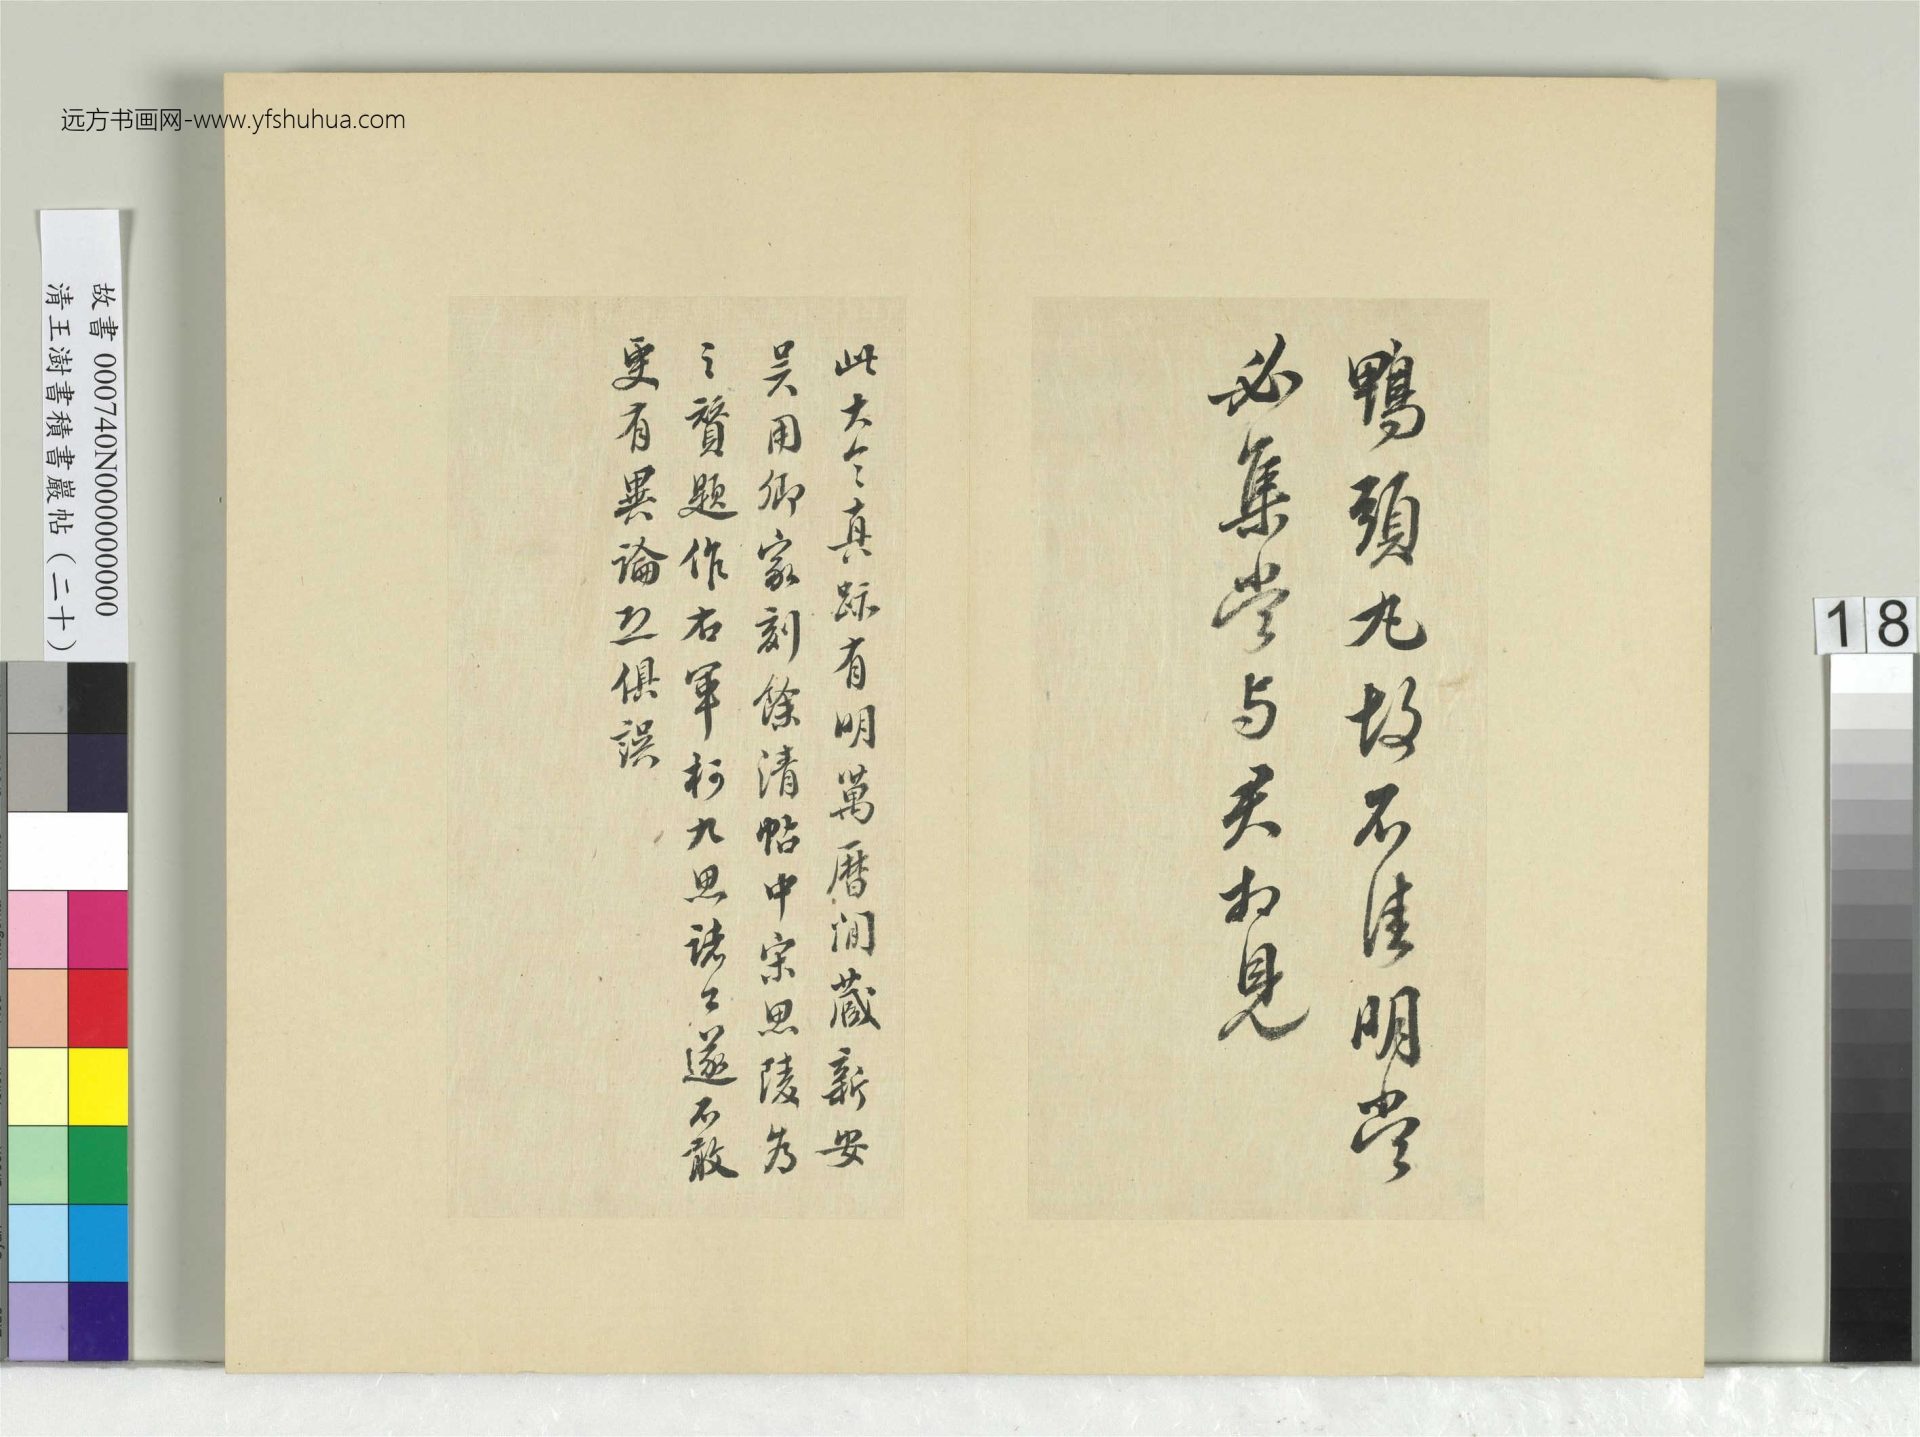 远方书画网-www.yfshuhua.com
鴨頭丸故不佳明當
必集當与君相見
此大令真跡有明萬曆間藏新安
吳用卿家刻餘清帖中宋思陵為
之贊題作右軍柯九思諸公遂不敢
更有異論俱誤
故書 000740N000000000
清王澍書積書巖帖（二十）
18